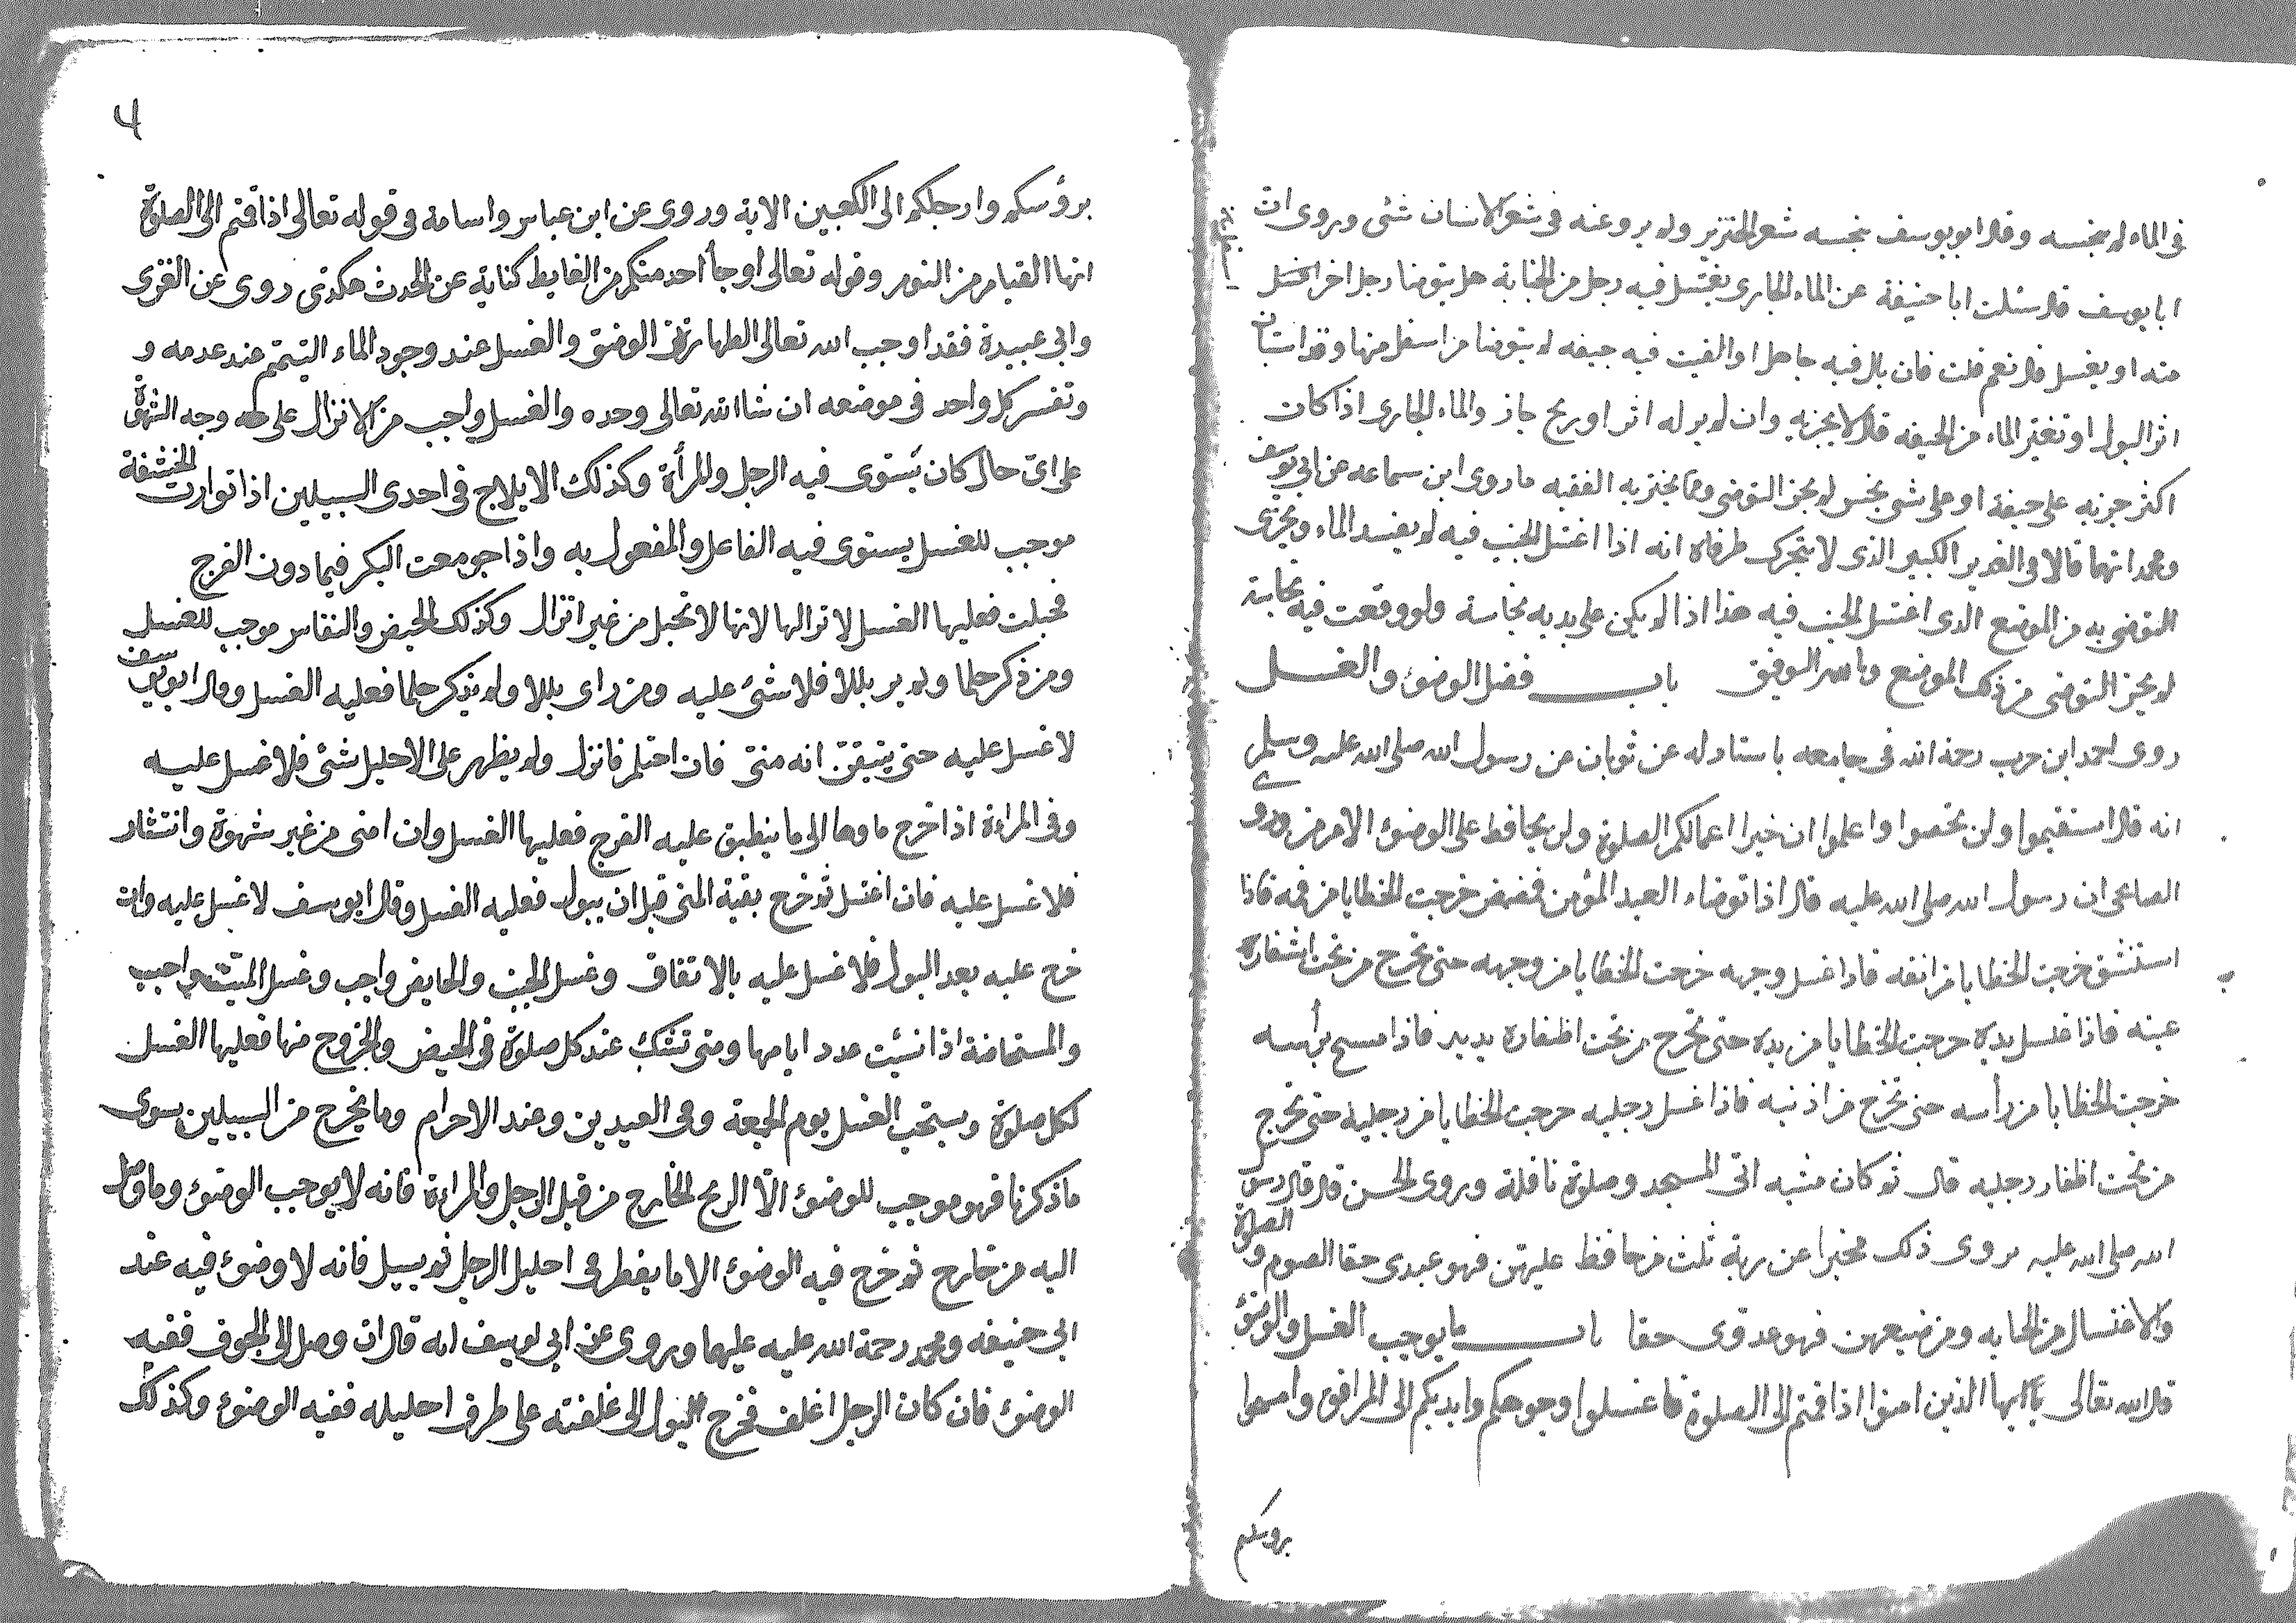 فى الماء لم ينجسه وقال ابو يوسف ينجسه شعر الخنزير ولم يرو عنه فى شعر الانسان شئى وروى ان
ابا يوسف قال سئلت ابا حنيفة عن الماء الجارى يغتسل فيه رجل من الجنابة هل يتوضا رجل اخر اسفل
منه او يغسل قال نعم قلت فان بال فيه جاهل او القيت فيه جيفه لم يتوضا من اسفل منها وقد استبان
اثر البول او تغير الماء من الجيفه قال لا يجزيه وان لم ير له اثر او ريح جاز والماء الجارى اذا كان
اكثر جريه على جيفة او على شى نجس لم يجز التوضى ومما يختر به الفقيه ما روى ابن سماعه عن ابى يوسف
ومحمد انهما قالا فى الغدير الكبير الذى لا يتحرك طرفاه انه اذا اغتسل الجنب فيه لم يفسد الماء ويجزى
التوضى به من الموضع الذى اغتسل الجنب فيه هذا اذا لم يكن على يديه نجاسة ولو وقعت فيه نجاسة
لم يجز التوضى من ذلك الموضع وبالله التوفيق باب فضل الوضوء والغسل
روى احمد ابن حرب رحمة الله فى جامعه باسناد له عن ثوبان عن رسول الله صلى الله عليه وسلم
انه قال استقيموا ولن تحصوا واعلموا ان خير اعمالكم الصلوة ولن يحافظ على الوضوء الا مومن وروى
الصنابحى ان رسول الله صلى الله عليه قال اذا توضاء العبد المؤمن فمضمض خرجت الخطايا من فمه فاذا
استنشق خرجت الخطايا من انفه فاذا غسل وجهه خرجت الخطايا من وجهه حتى تخرج من تحت اشفاره
عينه فاذا غسل يديه خرجت الخطايا من يديه حتى تخرج من تحت اظفاره يديه فاذا مسح براسه
خرجت الخطايا من رأسه حتى تخرج من اذنيه فاذا غسل رجليه خرجت الخطايا من رجليه حتى تخرج
من تحت اظفار رجليه قال ثم كان مشيه الى المسجد وصلوة نافلة وروى الحسن قال قال رسول
الله صلى الله عليه يروى ذلك مخبرا عن ربه ثلث من حافظ عليهن فهو عبدى حقا الصوم والصلوة
والاغتسال من الجنابه ومن ضيعهن فهو عدوى حقا باب ما يوجب الغسل والوضوء
قال الله تعالى يا ايها الذين امنوا اذا قمتم الى الصلوة فاغسلوا وجوهكم وايديكم الى المرافق وامسحوا
بروسكم
٤
برؤسكم وارجلكم الى الكعبين الاية وروى عن ابن عباس واسامة فى قوله تعالى اذا قمتم الى الصلوة
انها القيام من النوم وقوله تعالى او جاأ احد منكم من الغايط كناية عن الحدث هكذى روى عن
وابى عبيدة فقد اوجب الله تعالى الطهارة فى الوضوء والغسل عند وجود الماء التيمم عند عدمه و
وتفسر كل واحد فى موضعه ان شا الله تعالى وحده والغسل واجب من الانزال على وجه الشهوة
على اى حال كان يستوى فيه الرجل والمرأة وكذلك الايلاج فى احدى السبيلين اذا توارت الحشفة
موجب للغسل يستوى فيه الفاعل والمفعول به واذا جومعت البكر فيما دون الفرج
فحبلت فعليها الغسل لانزالها لانها لا تحبل من غير انزال وكذلك الحيض والنفاس موجب للغسل
ومن ذكر حلما ولم ير بللا فلا شئ عليه ومن راى بللا ولم يذكر حلما فعليه الغسل وقال ابو يوسف
لا غسل عليه حتى يتيقن انه منى فان احتلم فانزل ولم يظهر على الاحليل شئ فلا غسل عليه
وفى المراءة اذا خرج ماوها الى ما ينطبق عليه الفرج فعليها الغسل وان امنى من غير شهوة وانتشار
فلا غسل عليه فان اغتسل ثم خرج بقية المنى قبل ان يبول فعليه الغسل وقال ابو يوسف لا غسل عليه وان
خرج عليه بعد البول فلا غسل عليه بالاتفاق وغسل الجنب والحايض واجب وغسل الميت واجب
والمستحاضة اذا نسيت عدد ايامها ومتى تشك عند كل صلوة فى الحيض والخروج منها فعليها الغسل
لكل صلوة ويستحب الغسل يوم الجمعة وفى العيدين وعند الاحرام وما يخرج من السبيلين سوى
ما ذكرنا فهو موجب للوضوء الا الريح الخارج من قبل الرجل والمراءة فانه لا يوجب الوضوء وما وصل
اليه من خارج ثم خرج فيه الوضوء الا ما يقطر فى احليل الرجل ثم يسيل فانه لا وضوء فيه عند
ابى حنيفه ومحمد رحمة الله عليه عليهما وروى عن ابى يوسف انه قال ان وصل الى الجوف ففيه
الوضوء فان كان الرجل اغلف فخرج البول الى غلفته على طرف احليله ففيه الوضوء وكذلك